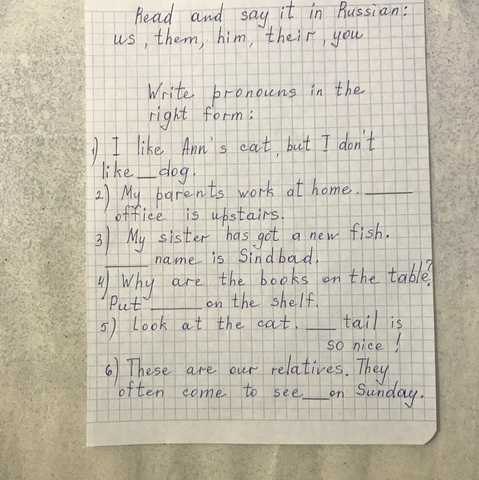 Read and say it in Russian:
us, them, him, their, you
Write pronouns in the
right form:
1) I like Ann's cat, but I don't
like __ dog.
2) My parents work at home. ____
office is upstairs.
3) My sister has got a new fish.
____ name is Sindbad.
4) Why are the books on the table?
Put ____ on the shelf.
5) Look at the cat. __ tail is
so nice!
6) These are our relatives. They
often come to see __ on Sunday.